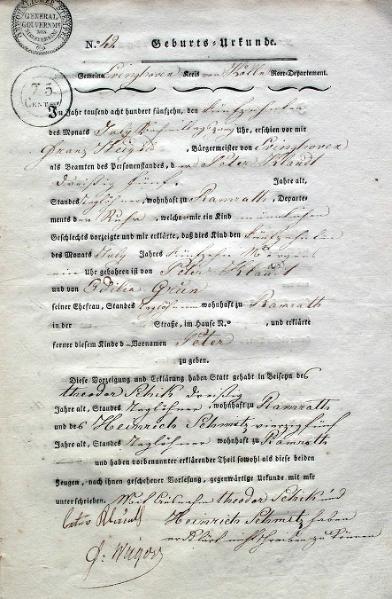 GENERAL
GOUVERNEMENT
75
CENTIM
N.° 62 Geburts-Urkunde.
Gemeinde Evinghoven Kreis von Kölln Roer-Departement.
Im Jahr tausend acht hundert fünfzehn, den fünfzehnten
des Monats July Uhr, erschien vor mir
Franz , Bürgermeister von Evinghoven
als Beamten des Personenstandes, der Peter Klaudt
Dreißig fünf Jahre alt,
Standes Taglöhner, wohnhaft zu Ramrath, Departe-
ments der Ruhr, welcher mir ein Kind männlichen
Geschlechts vorzeigte und mir erklärte, daß dies Kind den fünfzehnten
des Monats July Jahres fünfzehn Morgens
Uhr gebohren ist von Peter Klaudt
und von Odilia Grün
seiner Ehefrau, Standes Taglöhnerin wohnhaft zu Ramrath
in der Straße, im Hause N.° , und erklärte
ferner diesem Kinde d Vornamen Peter
zu geben.
Diese Vorzeigung und Erklärung haben Statt gehabt in Beiseyn des
theodor Schik Dreißig
Jahre alt, Standes Taglöhner, wohnhaft zu Ramrath
und des Heinrich Schmitz vierzig fünf
Jahre alt, Standes Taglöhner wohnhaft zu Ramrath
und haben vorbenannter erklärender Theil sowohl als diese beiden
Zeugen, nach ihnen geschehener Vorlesung, gegenwärtige Urkunde mit mir
unterschrieben. theodor Schik und
Heinrich Schmitz haben
erklärt nicht schreiben zu können